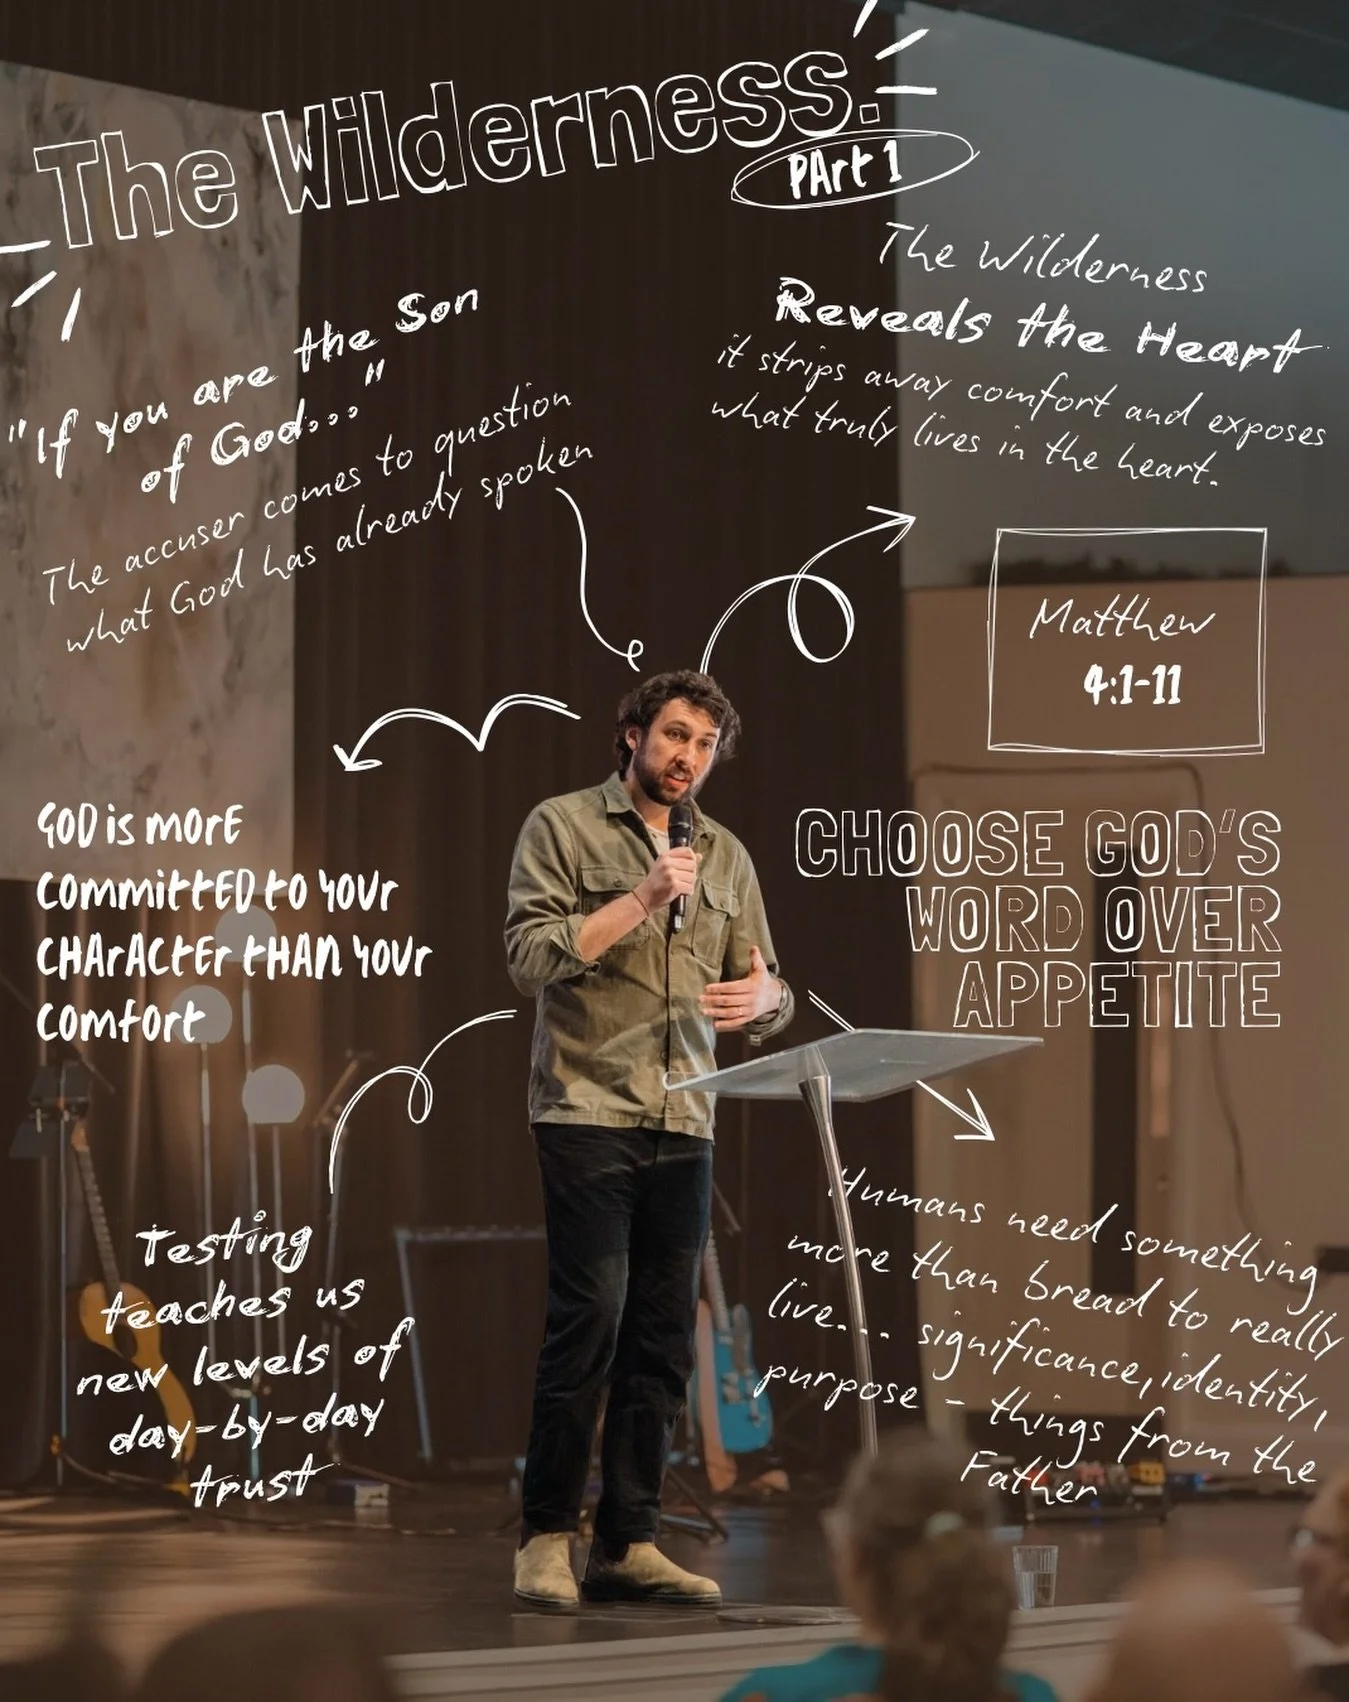 The Wilderness.
PArt 1
"If you are the Son
of God..."
The accuser comes to question
what God has already spoken
The Wilderness
Reveals the Heart
it strips away comfort and exposes
what truly lives in the heart.
Matthew
4:1-11
GOD is morE
committED to YOUr
CHArActEr tHAn YOUr
comfort
CHOOSE GOD'S
WORD OVER
APPETITE
Testing
teaches us
new levels of
day-by-day
trust
Humans need something
more than bread to really
live... significance, identity,
purpose - things from the
Father